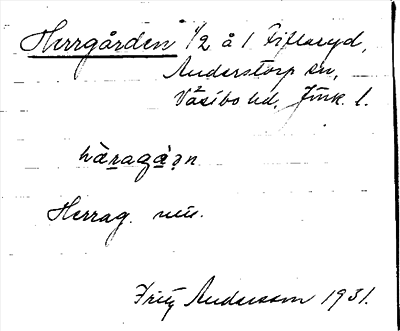 Herrgården 1/2 å 1 Fiflaryd,
Anderstorp sn,
Västbo hd, Jönk. l.
hæ̀ragàn
Herrag. mn.
Fritz Andersson 1931.